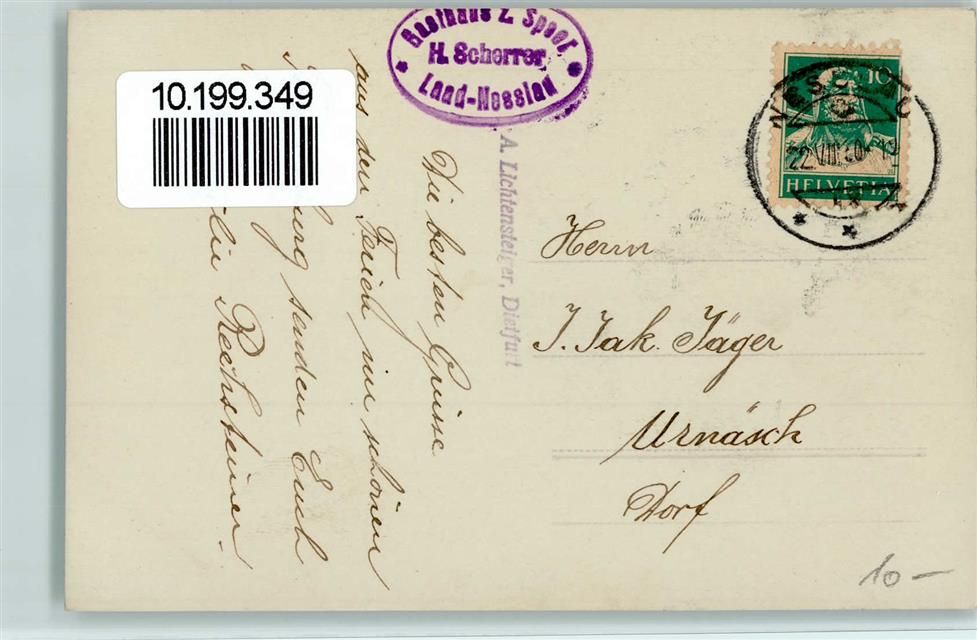 Gasthaus z. Speer.
H. Scherrer
Laad-Nesslau
10.199.349
10
HELVETIA
NESSLAU
22.VIII.
A. Lichtensteiger, Dietfurt
Die besten Grüsse
aus den Ferien im schönen
burg senden Euch
Rechsteiner.
Herrn
J. Jak. Jäger
Urnäsch
Dorf
10 —